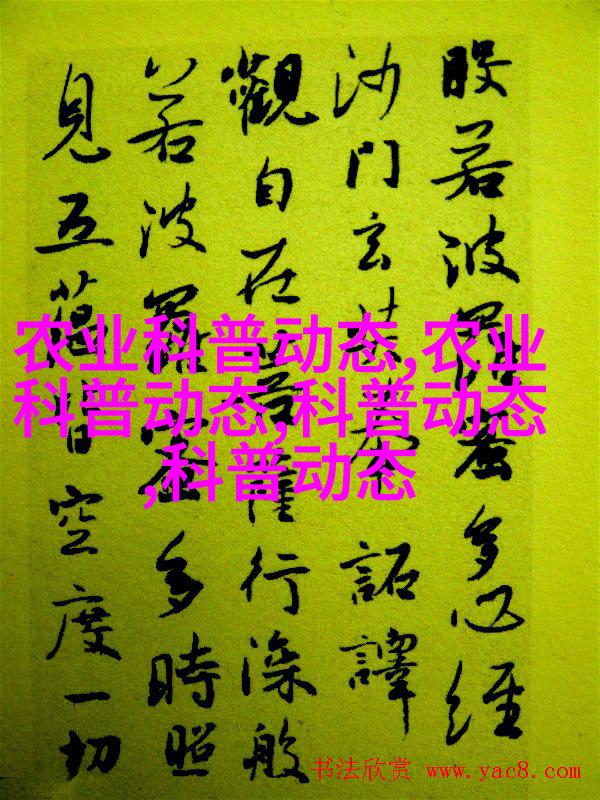 般若波羅蜜多心經
沙門玄奘奉 詔譯
觀自在菩薩行深般
若波羅蜜多時照
見五蘊皆空度一切
农业科普动态,农业
科普动态,科普动态
,科普动态
书法欣赏 www.yac8.com